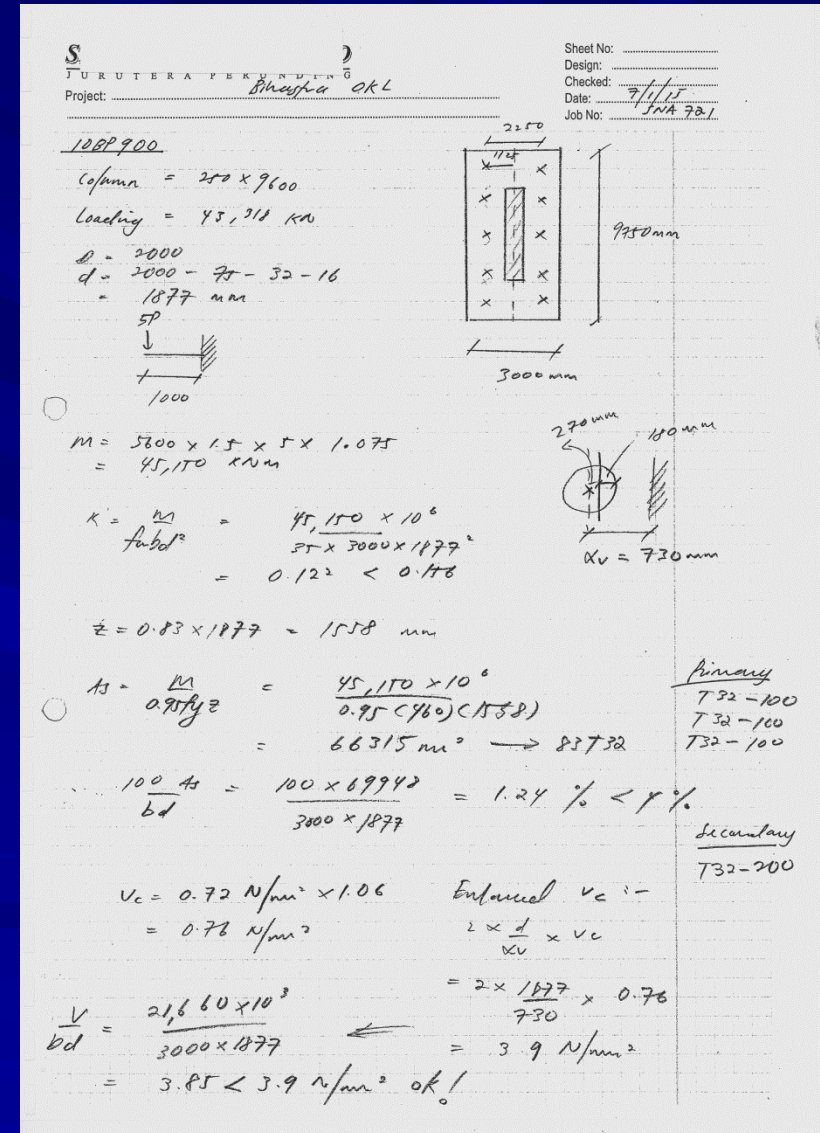 S
JURUTERA PERUNDING
Project: OKL
Sheet No:
Design:
Checked:
Date: 7/1/15
Job No: SNA 721
10BP900
Column = 250 x 9600
Loading = 43,318 KN
D = 2000
d = 2000 - 75 - 32 - 16
= 1877 mm
5P
1000
2250
1125
9750mm
3000mm
M = 5600 x 1.5 x 5 x 1.075
= 45,150 KNm
270mm
180mm
αv = 730mm
K = M/fcubd² = 45,150 x 10⁶ / 35 x 3000 x 1877²
= 0.122 < 0.156
Z = 0.83 x 1877 = 1558 mm
As = M/0.95fyz = 45,150 x 10⁶ / 0.95(460)(1558)
= 66315 mm² → 83T32
Primary
T32-100
T32-100
T32-100
100 As/bd = 100 x 69948 / 3000 x 1877 = 1.24 % < 4%
Secondary
T32-200
Vc = 0.72 N/mm² x 1.06
= 0.76 N/mm²
Enhanced Vc :-
2 x d/αv x Vc
= 2 x 1877/730 x 0.76
= 3.9 N/mm²
V/bd = 21,660 x 10³ / 3000 x 1877
= 3.85 < 3.9 N/mm² ok!